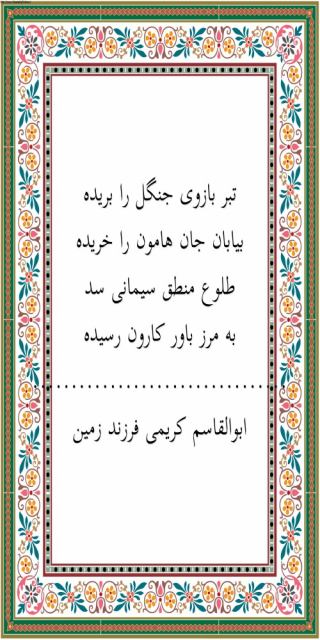 تبر بازوی جنگل را بریده
بیابان جان هامون را خریده
طلوع منطق سیمانی سد
به مرز باور کارون رسیده
........................................
ابوالقاسم کریمی فرزند زمین